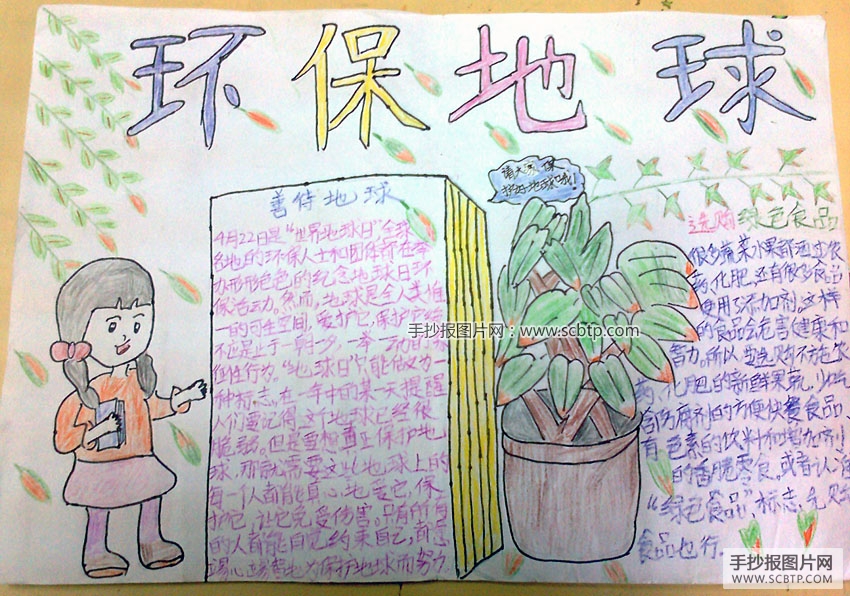 环保地球
请大家保
护好地球哦!
善待地球
4月22日是“世界地球日”全球
各地的环保人士和团体都在举
办形形色色的纪念地球日环
保活动。然而,地球是全人类惟
一的可生空间,爱护它,保护它
不应是止于一朝一夕,一举一动
性行为。“地球日”只能做为一
种标志。在一年中的某一天提醒
人们要记得这个地球已经很
脆弱。但是要想真正保护地
球,那就需要这地球上的
每一个人都能真心地爱它,保
护它,让它免受伤害。只有所有
的人都能自觉约束自己,自己
为保护地球而努力
选购绿色食品
很多蔬菜水果都通过农
药、化肥。还有很多食品
使用了添加剂。这样
的食品会危害健康和
智力。所以选购不施农
药、化肥的新鲜果蔬,少吃
含防腐剂的方便快餐食品、
有色素的饮料和增加剂
的香脆零食。或者认准
“绿色食品”标志
食品也行.
手抄报图片网:www.scbtp.com
手抄报图片网
WWW.SCBTP.COM